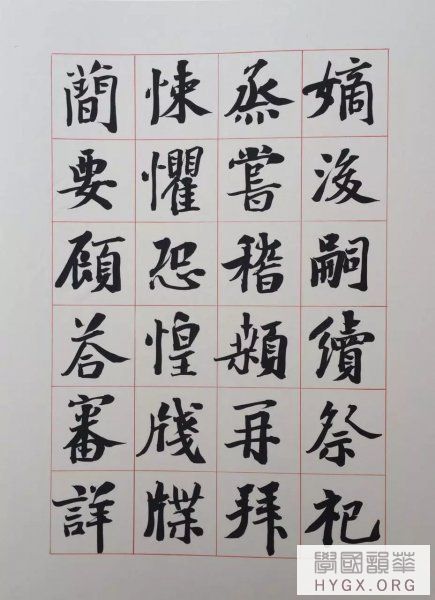 嫡後嗣續祭祀
蒸嘗稽顙再拜
悚懼恐惶牋牒
蕳要顧荅審詳
學國韻華
HYGX.ORG